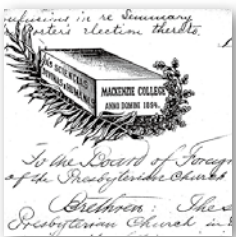 in re Summary
Porter's election thereto.
DIVINAS E HUMANAS
MACKENZIE COLLEGE
ANNO DOMINI 1894.
To the Board of Foreign
of the Presbyterian Church
Brethren: The s
Presbyterian Church in